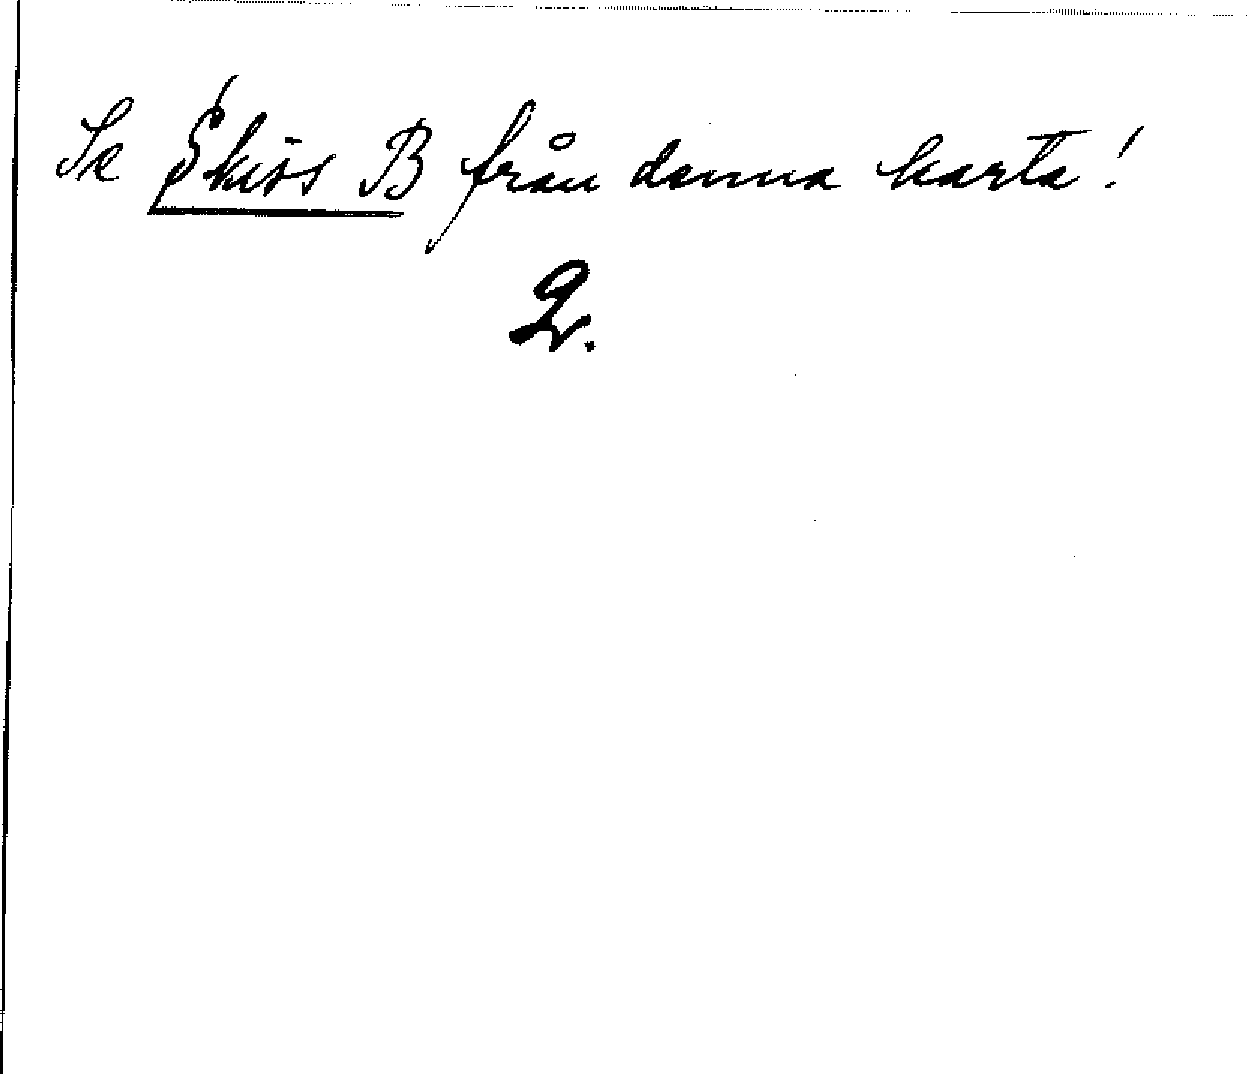 Se Skiss B från denna karta!
2.